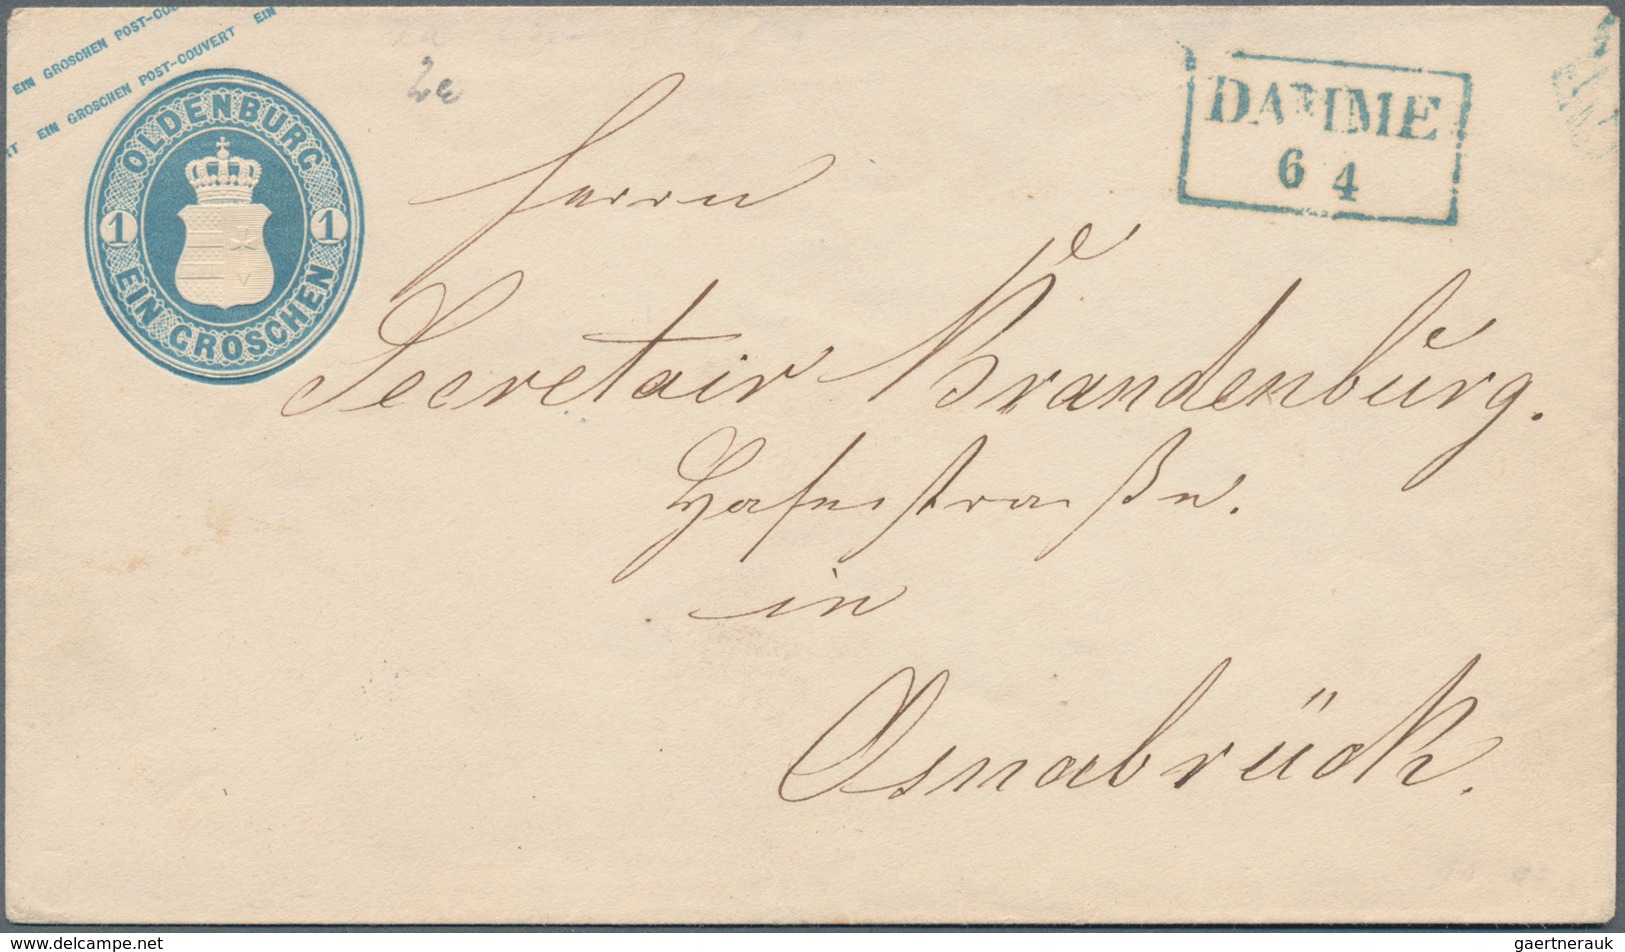 EIN GROSCHEN POST-COU
RT EIN GROSCHEN POST-COUVERT EIN
OLDENBURG
1 1
EIN GROSCHEN
DAMME
6 4
Herrn
Secretair Brandenburg.
Hafenstraße.
in
Osnabrück.
www.delcampe.net
gaertnerauk